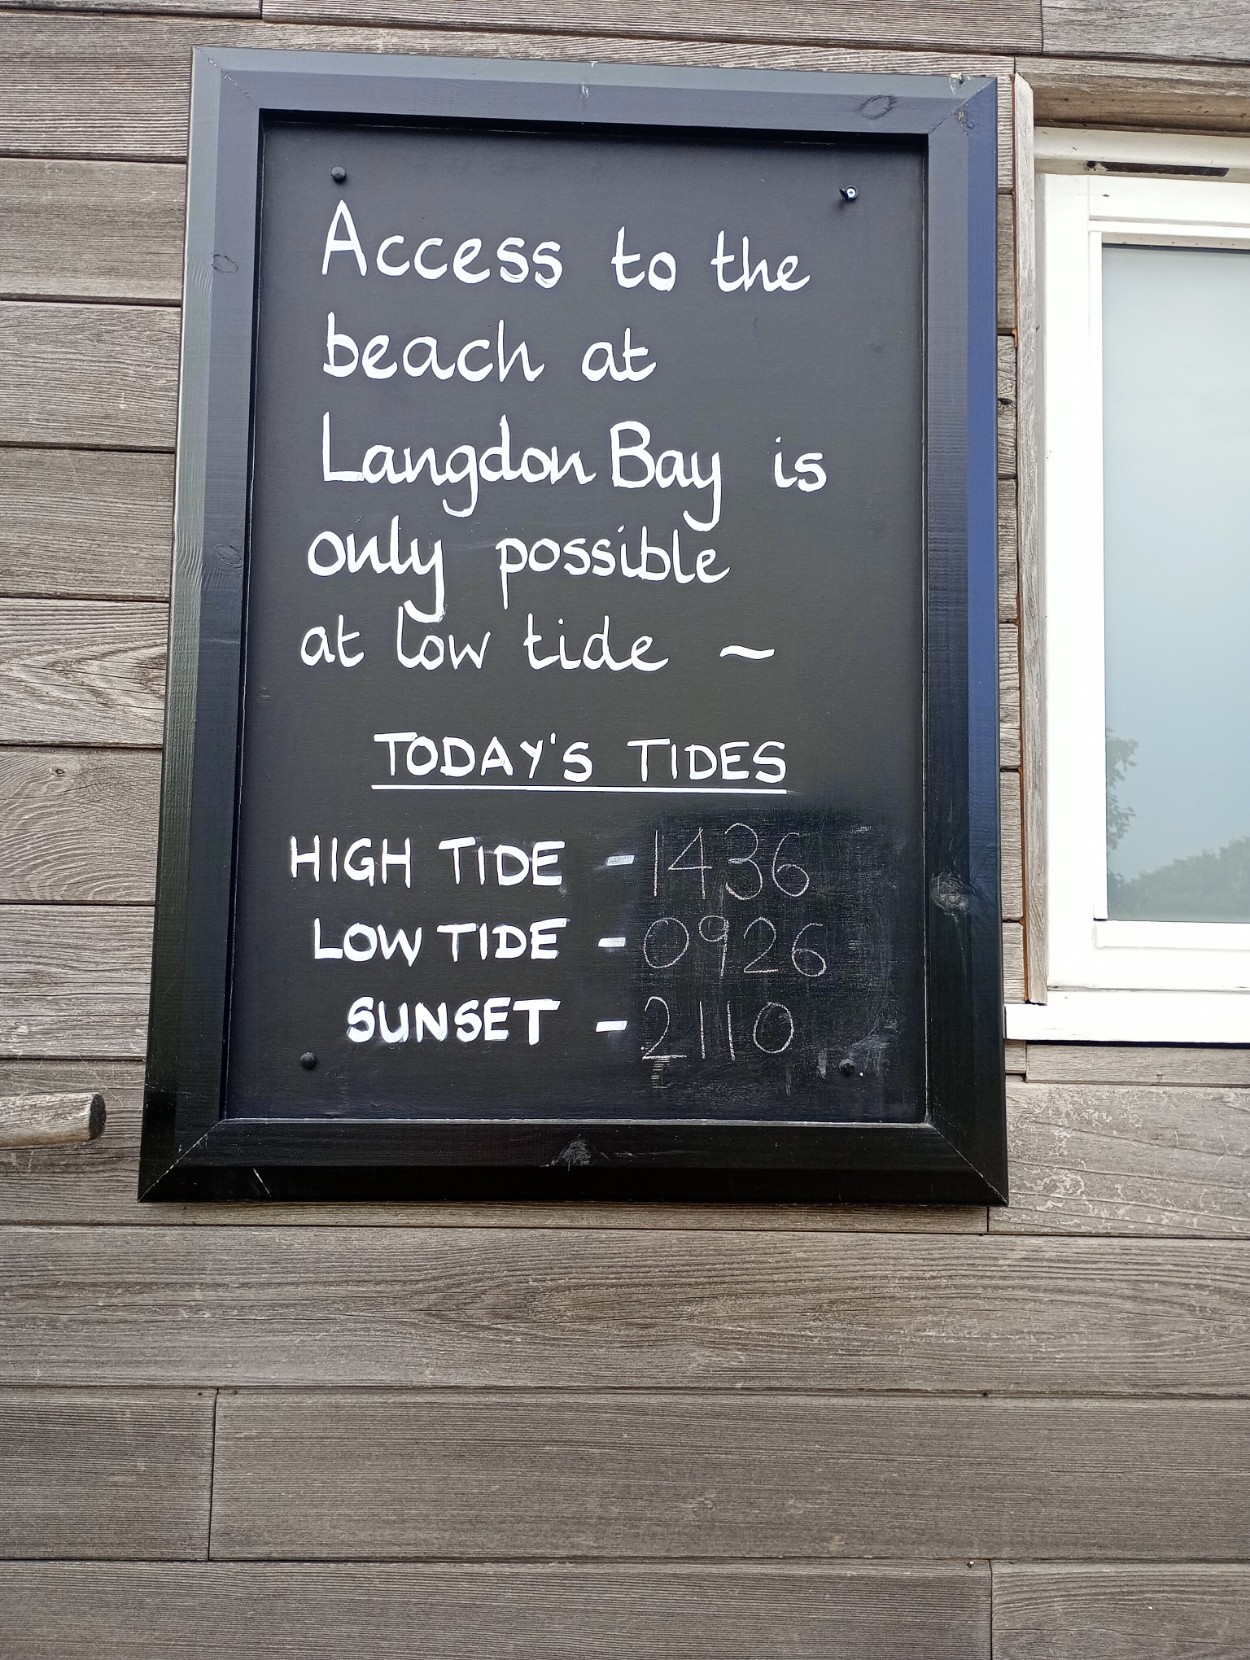 Access to the
beach at
Langdon Bay is
only possible
at low tide ~
TODAY'S TIDES
HIGH TIDE - 1436
LOW TIDE - 0926
SUNSET - 2110